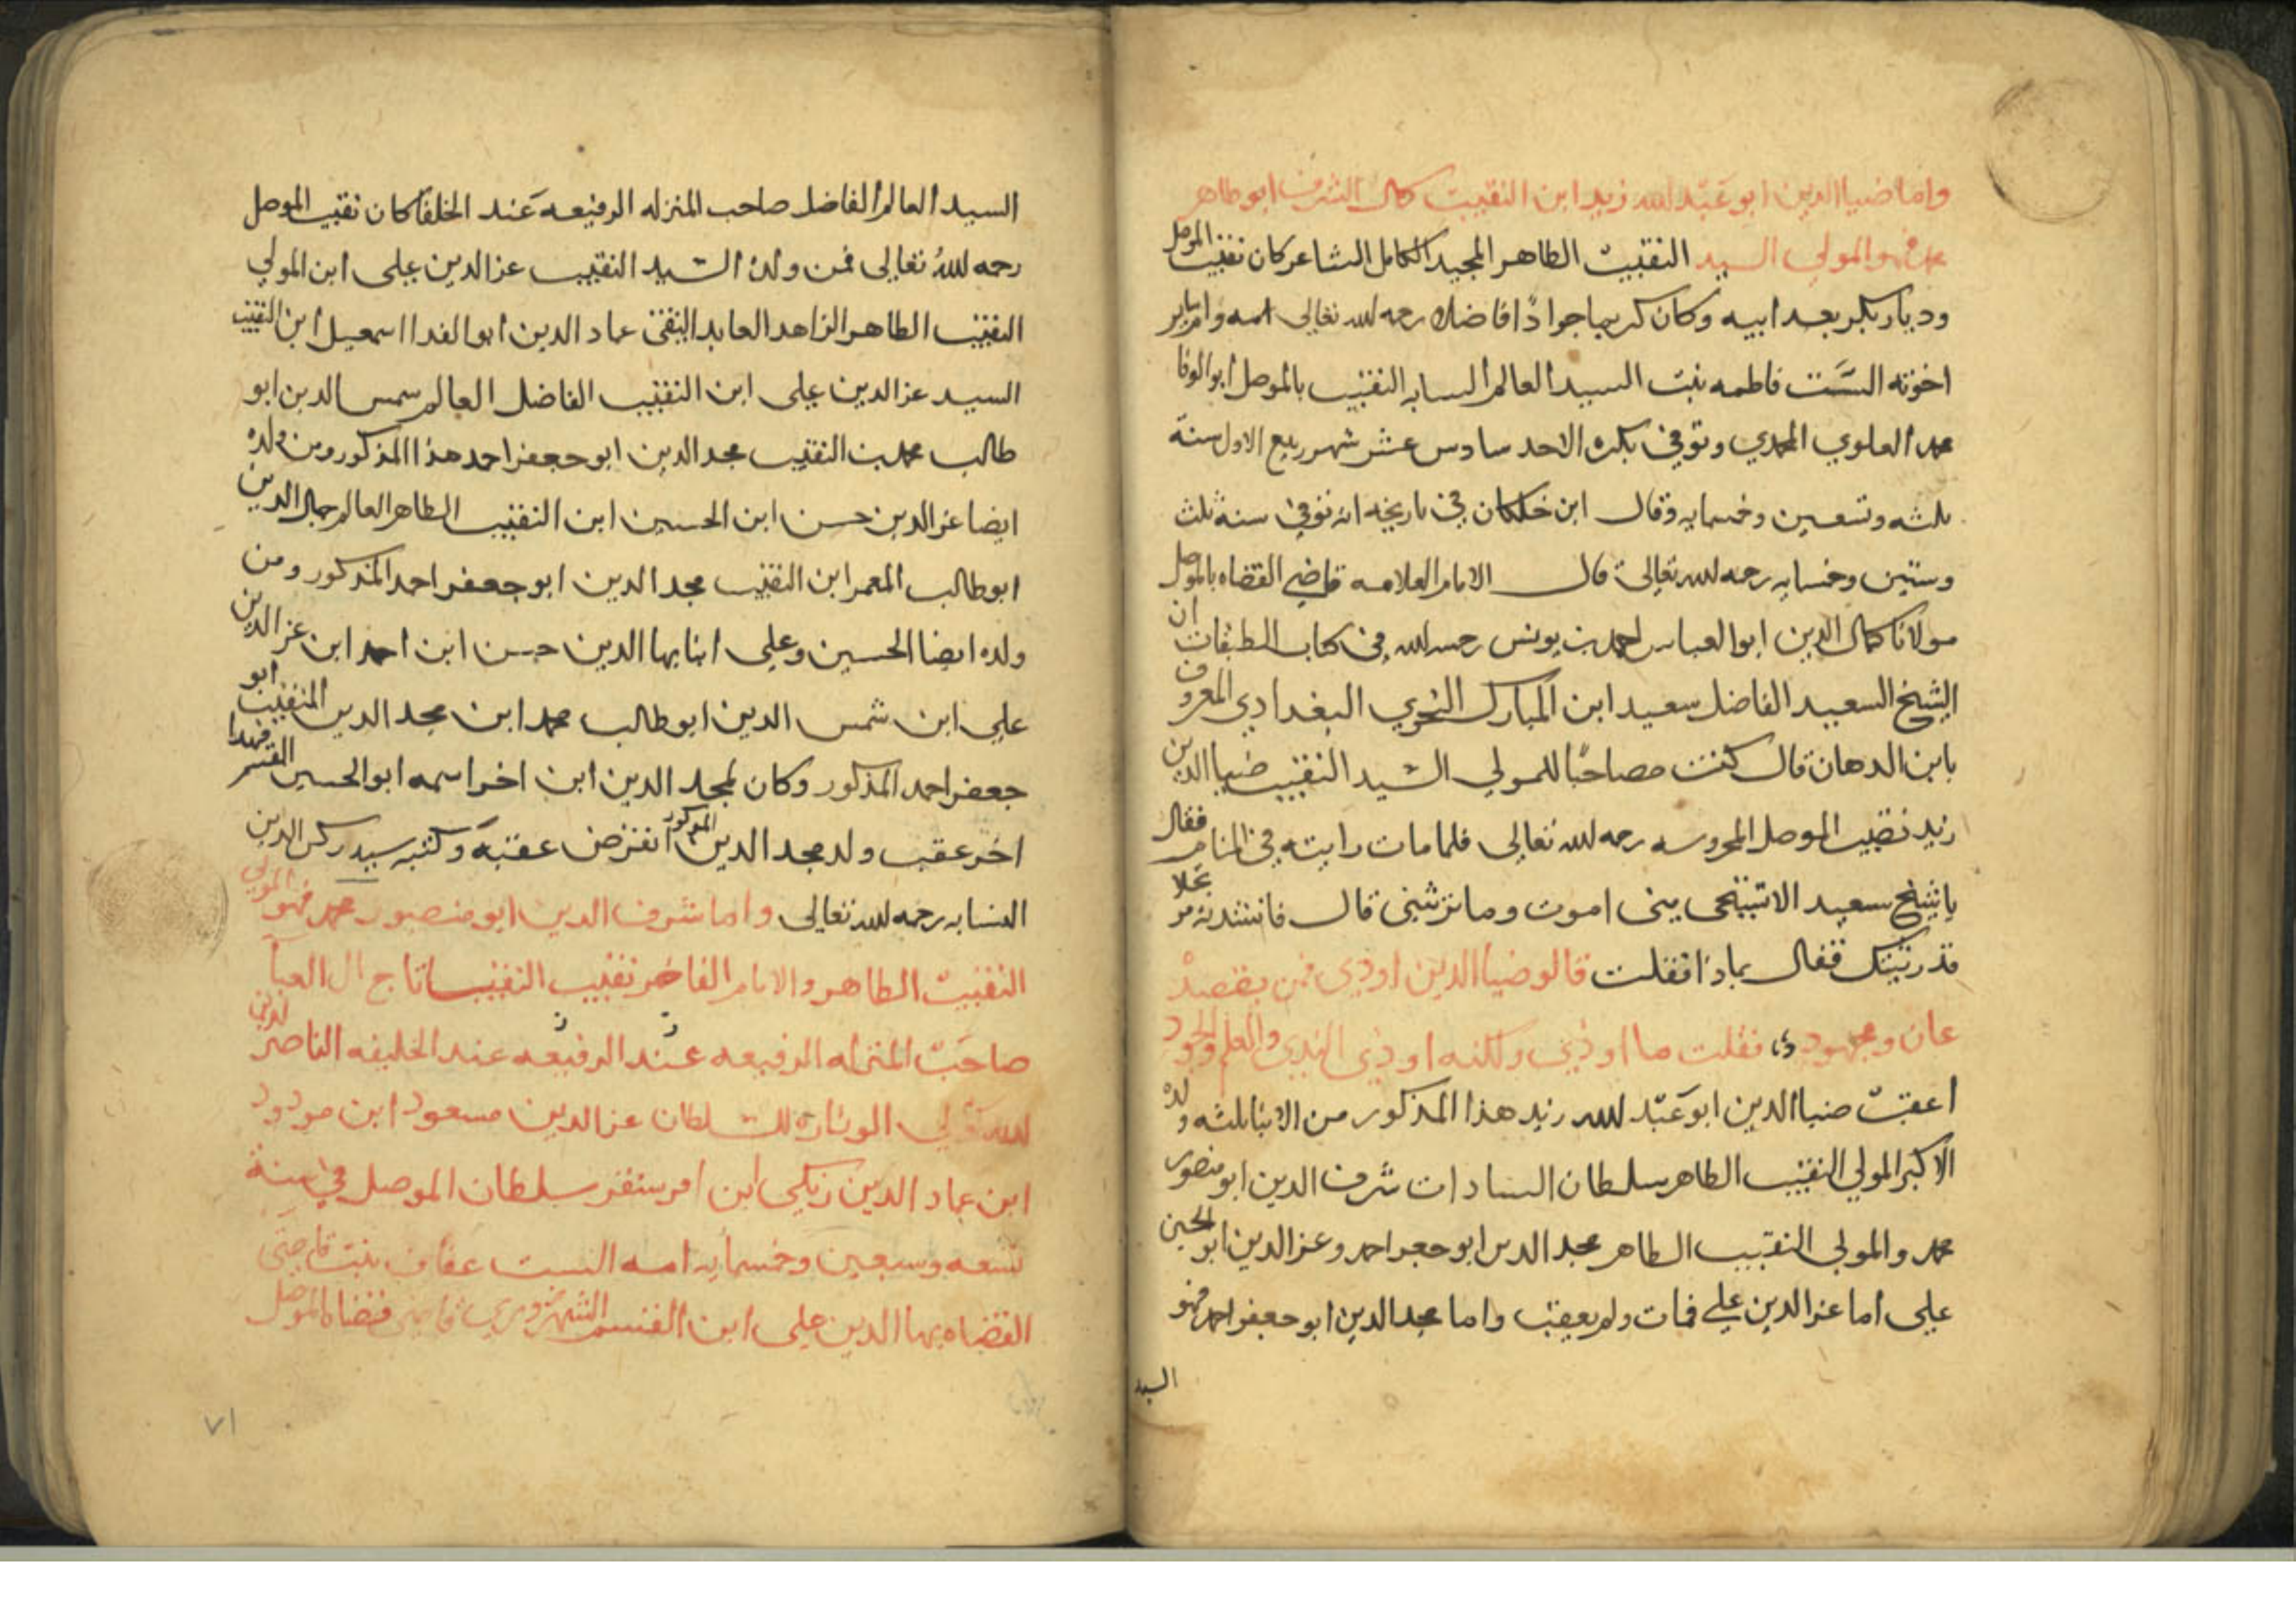 واما ضياالدين ابو عبد الله زيد ابن النقيب كمال الشرف ابو طاهر
محمد فهو المولي السيد النقيب الطاهر المجيد الكامل الشاعر كان نقيب الموصل
وديار بكر بعد ابيه وكان كريما جوادًا فاضلا رحمه الله تعالي امه وام
اخوته الست فاطمه بنت السيد العالم النسابه النقيب بالموصل ابو الوفا
محمد العلوي المحمدي وتوفي بكره الاحد سادس عشر شهر ربيع الاول سنة
ثلثه وتسعين وخمسمايه وقال ابن خلكان في تاريخه انه توفي سنة ثلث
وستين وخمسمايه رحمه الله تعالي قال الامام العلامه قاضي القضاه بالموصل
مولانا كمال الدين ابو العباس احمد بن يونس رحمه الله في كتاب الطبقات ان
الشيخ السعيد الفاضل سعيد ابن المبارك النحوي البغدادي المعروف
بابن الدهان قال كنت مصاحبًا للمولي السيد النقيب ضياالدين
زيد نقيب الموصل المحروسه رحمه الله تعالي فلما مات رايته في المنام فقال
ياشيخ سعيد الاتستحي مني اموت وما ترثيني قال فانشدته مرتجلا
قد رثيتك فقال بماذا فقلت قالو ضياالدين اودي فمن يقصد
عان ومجهود فقلت ما اودي ولكنه اودي الندي والعلم والجود
اعقب ضياالدين ابو عبد الله زيد هذا المذكور من الابنا ثلثه ولده
الاكبر المولي النقيب الطاهر سلطان السادات شرف الدين ابو منصور
محمد والمولي النقيب الطاهر مجد الدين ابو جعفر احمد وعز الدين ابو الحسين
علي اما عز الدين علي فمات ولم يعقب واما مجد الدين ابو جعفر احمد فهو
السيد
السيد العالم الفاضل صاحب المنزله الرفيعه عند الخلفا كان نقيب الموصل
رحمه الله تعالي فمن ولده السيد النقيب عز الدين علي ابن المولي
النقيب الطاهر الزاهد العابد التقي عماد الدين ابو الفدا اسمعيل ابن النقيب
السيد عز الدين علي ابن النقيب الفاضل العالم شمس الدين ابو
طالب محمد بن النقيب مجد الدين ابو جعفر احمد هذا المذكور ومن ولده
ايضا عز الدين حسن ابن الحسين ابن النقيب الطاهر العالم جمال الدين
ابو طالب المعمر ابن النقيب مجد الدين ابو جعفر احمد المذكور ومن
ولده ايضا الحسين وعلي ابنا بها الدين حسن ابن احمد ابن عز الدين
علي ابن شمس الدين ابو طالب محمد ابن مجد الدين النقيب ابو
جعفر احمد المذكور وكان لمجد الدين ابن اخر اسمه ابو الحسين القسم فهذا
اخر عقب ولد مجد الدين المذكور انقرض عقبه وكتبه سيد ركن الدين
النسابه رحمه الله تعالي واما شرف الدين ابو منصور محمد فهو المولي
النقيب الطاهر والامام الفاخر نقيب النقبا تاج ال العبا
صاحب المنزله الرفيعه عند الرفيعه عند الخليفه الناصر لدين
الله تولي الوزارة للسلطان عز الدين مسعود ابن مودود
ابن عماد الدين زنكي ابن اقسنقر سلطان الموصل في سنة
تسعه وسبعين وخمسمايه امه الست عفاف بنت قاضي
القضاه بها الدين علي ابن القسم الشهرزوري قاضي قضاه الموصل
٧١